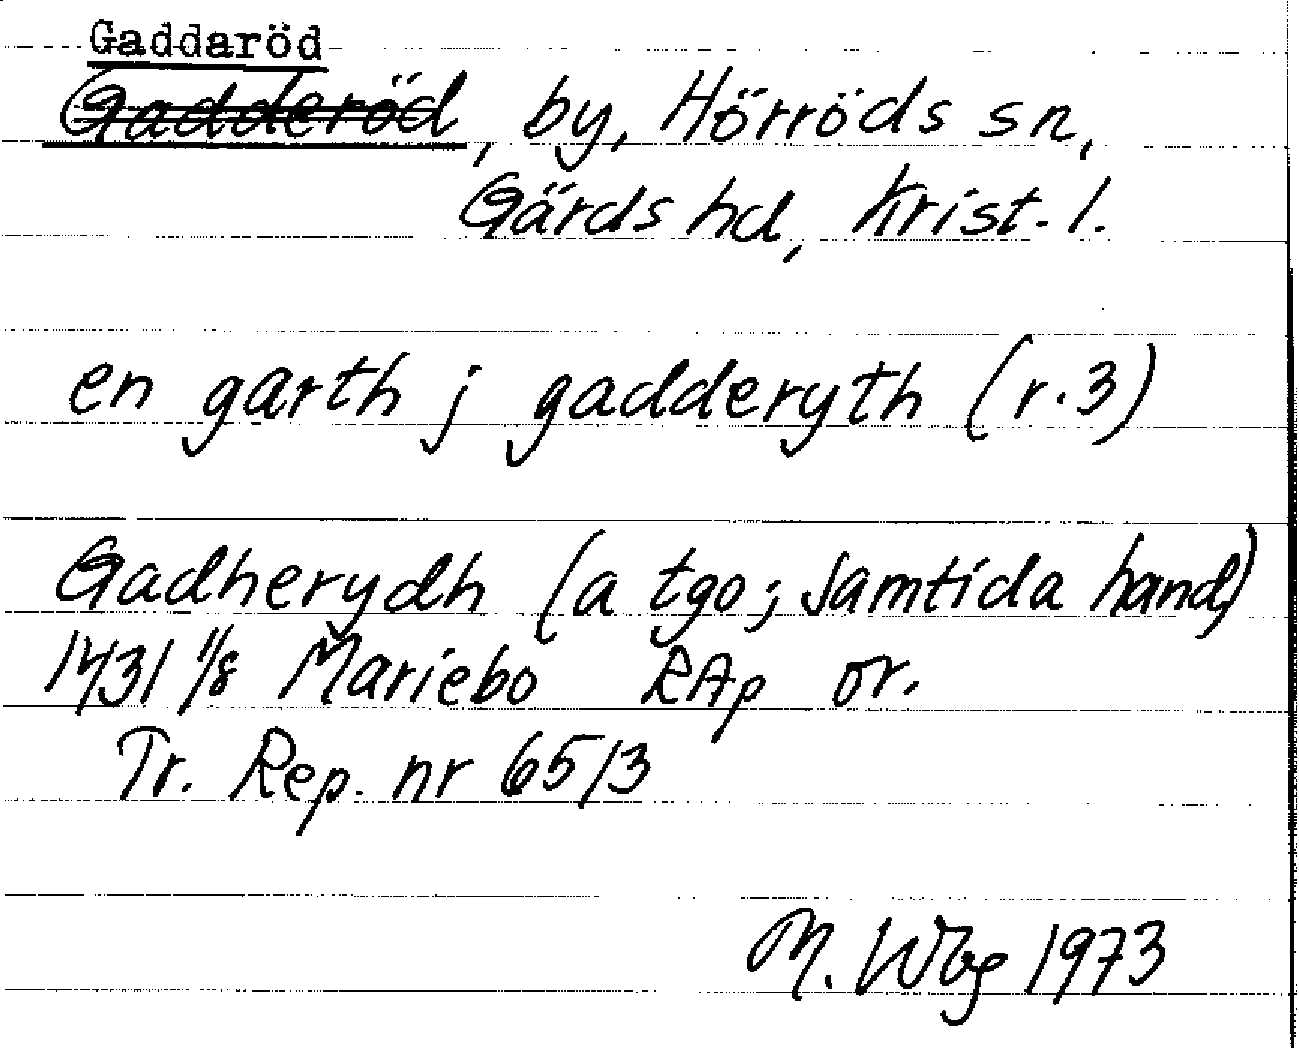 Gaddaröd
Gadderöd, by, Hörröds sn,
Gärds hd, Krist. l.
en garth j gadderyth (r. 3)
Gadherydh (a tgo; samtida hand)
1431 1/8 Mariebo RAp or.
Tr. Rep. nr 6513
M. Wbg 1973